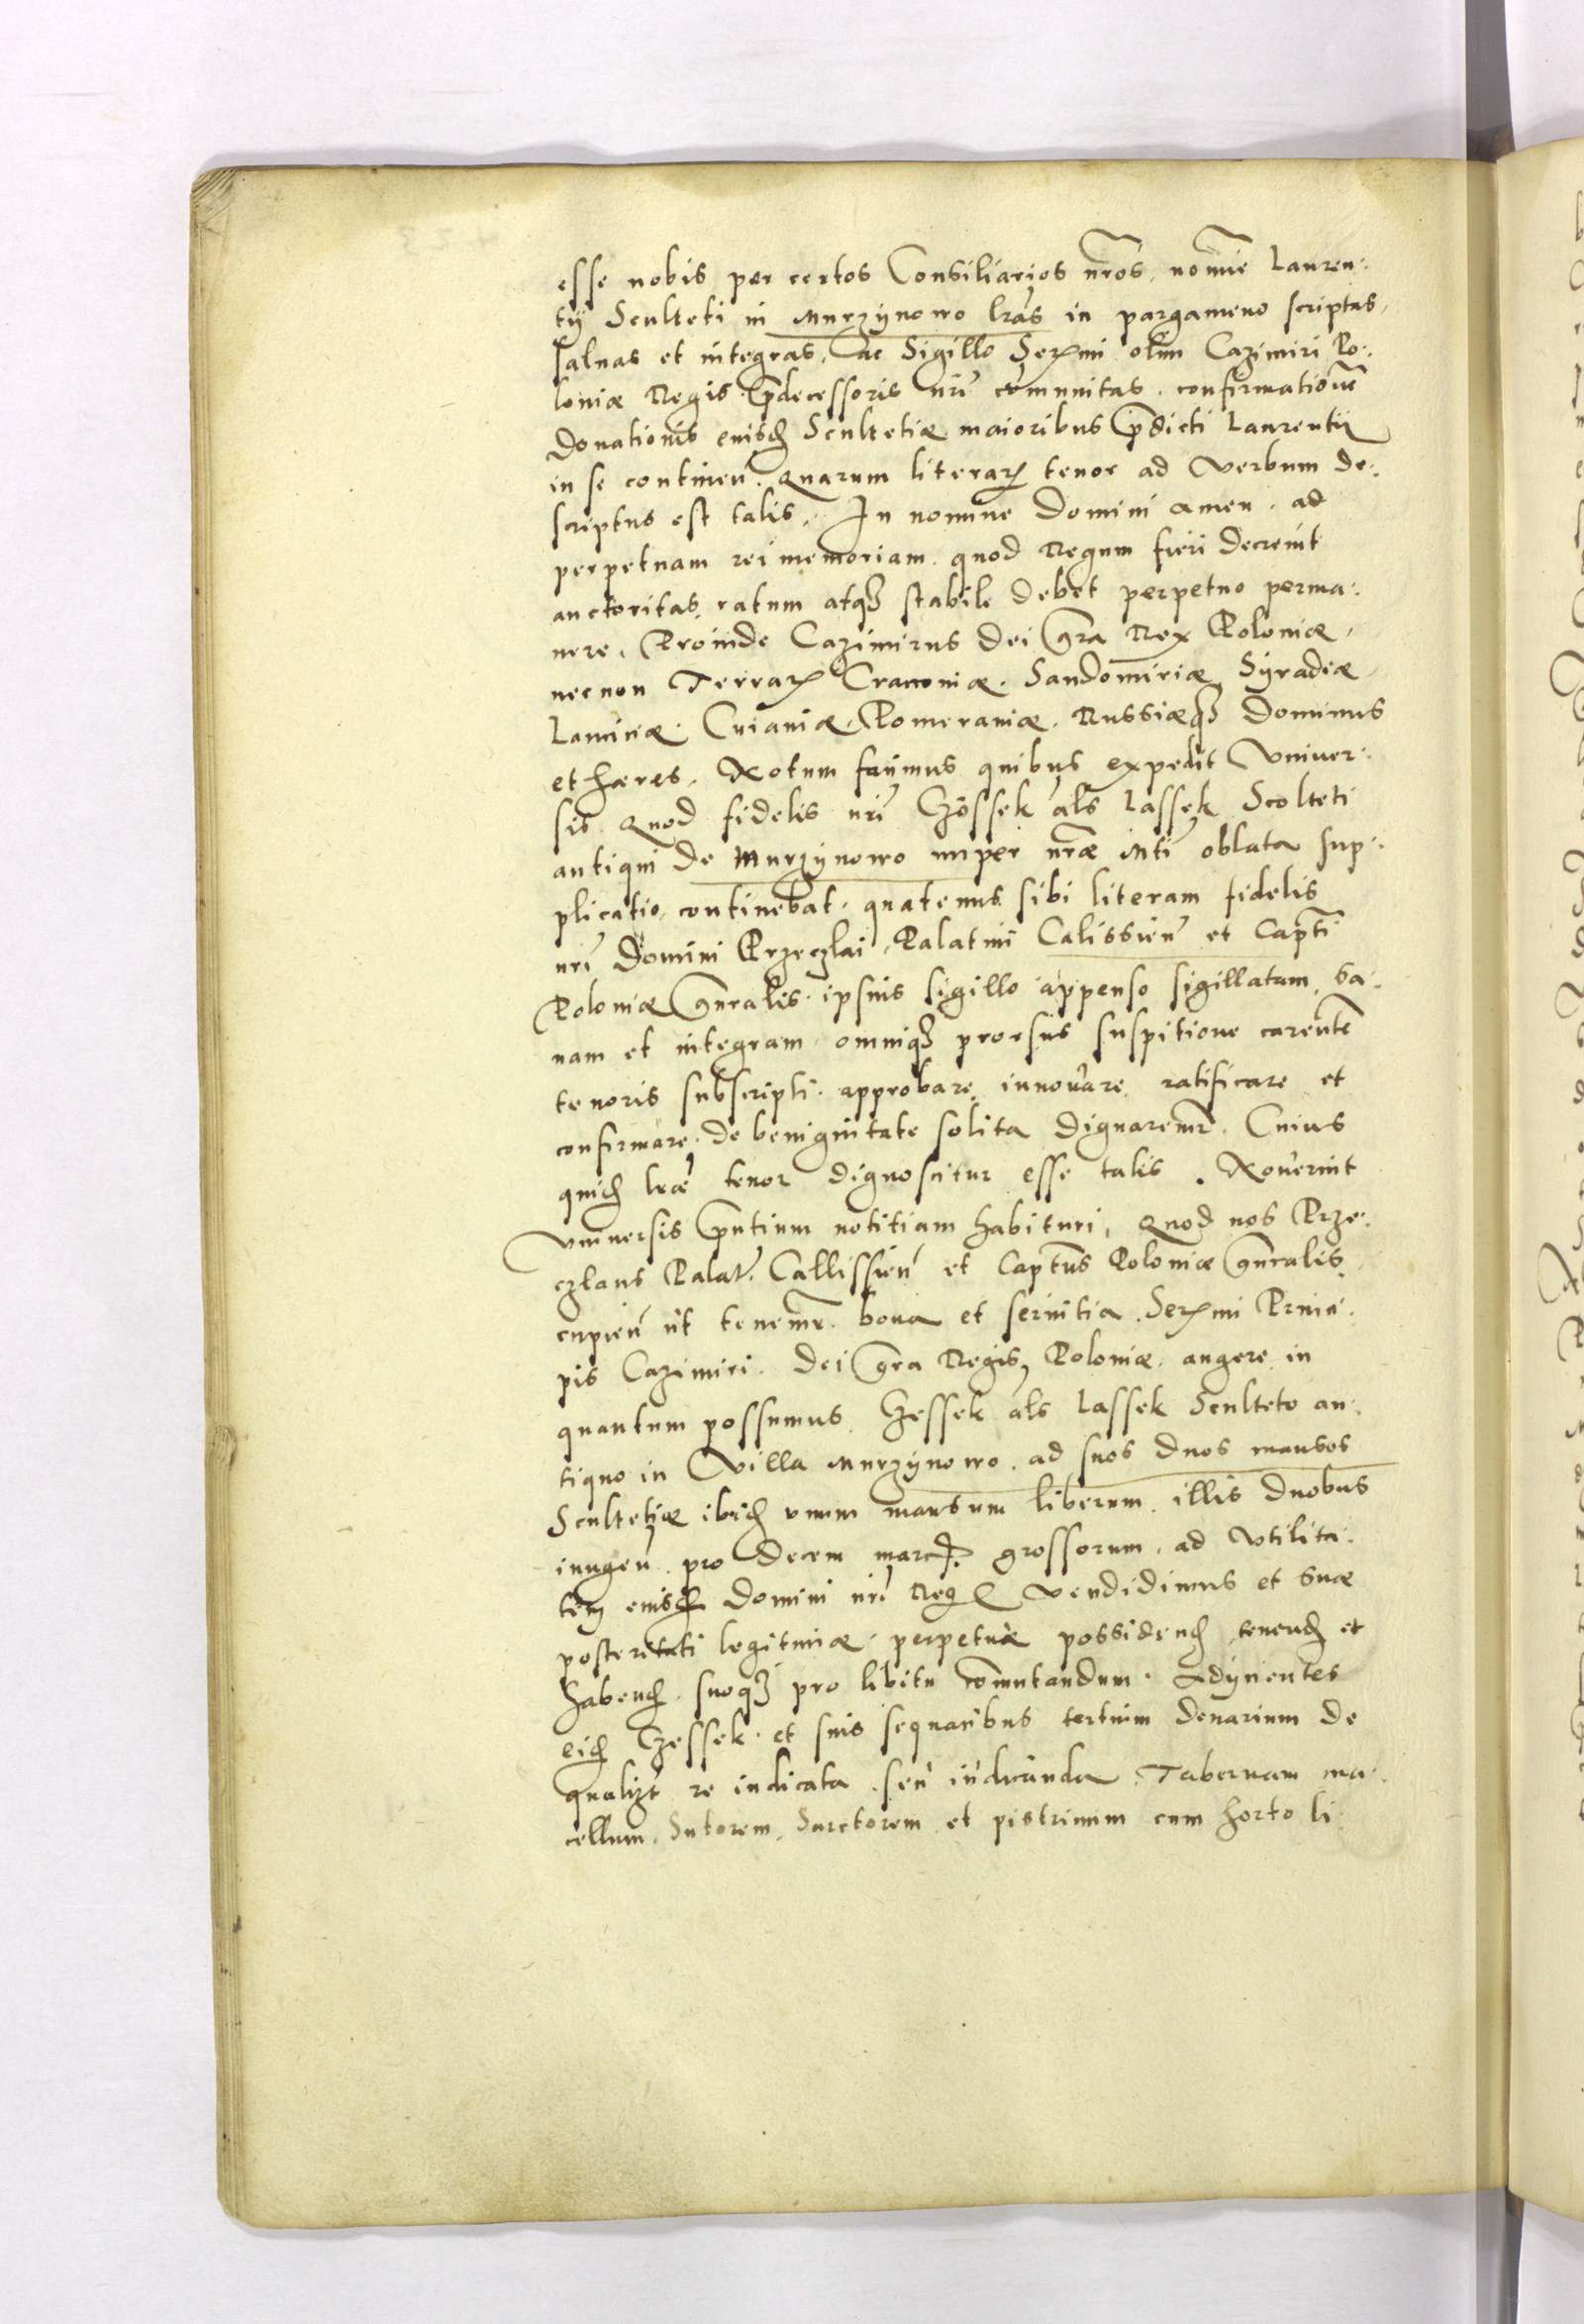 esse nobis per certos Consiliarios nr̃os, nomĩe Lauren:
tij Sculteti in Murzynowo l̃ras in pargameno scriptas,
saluas et integras, ac Sigillo Sermi olim Cazimiri Po:
loniæ Regis p̃decessoris nr̃i com̃unitas, confirmationẽ
donationis eiusd Scultetiæ maioribus p̃dicti Laurentij
in se continen̄. Quarum literarꝝ tenor ad verbum de:
scriptus est talis. In nomine Domini amen. ad
perpetuam rei memoriam. quod Regum fieri decreuit
auctoritas, ratum atqꝫ stabile debet perpetuo perma:
nere. Proinde Cazimirus dei gr̃a Rex Poloniæ,
necnon Terrarꝝ Cracouiæ. Sandomiriæ Syradiæ
Lanciciæ. Cuiauiæ. Pomeraniæ. Russiæqꝫ Dominus
et hæres. Notum facimus quibus expedit Vniuer:
sis. Quod fidelis nr̃i Czossek al̃s Lassek Scolteti
antiqui de Murzynowo nuper nr̃æ Mti oblata sup:
plicatio continebat. quatenus sibi literam fidelis
nr̃i Domini Przeczlai Palatini Calissien̄ et Capt̃i
Poloniæ gñralis. ipsius sigillo appenso sigillatam, sa:
nam et integram omniqꝫ prorsus suspitione carentẽ
tenoris subscripti. approbare innouare ratificare et
confirmare. de benignitate solita dignaremr̃. Cuius
quid l̃ræ tenor dignoscitur esse talis. Nouerint
Vniuersis p̃ntium notitiam habituri, Quod nos Prze:
czlaus Palat̃. Callissien̄ et Capt̃us Poloniæ gñralis
cupien̄ ut tenemr̃. bona et seruitia. Sermi Princi:
pis Cazimiri. dei gr̃a Regis Poloniæ. augere in
quantum possumus. Czessek al̃s Lassek Sculteto an:
tiquo in Villa Murzynowo. ad suos duos mansos
Scultetiæ ibid vnum mansum liberum. illis duobus
iungen̄. pro decem marc. grossorum. ad Vtilita:
tem eiusd Domini nr̃i Reg. vendidimus et suæ
posteritati legitimæ. perpetuæ possidend, tenend et
habend. suoqꝫ pro libitu com̃utandum. Adijcientes
eid Czessek. et suis sequacibus tertium denarium de
qualizt re iudicata. seu iudicanda Tabernam ma:
cellum. Sutorem. Sarctorem et pistrinum cum horto li: